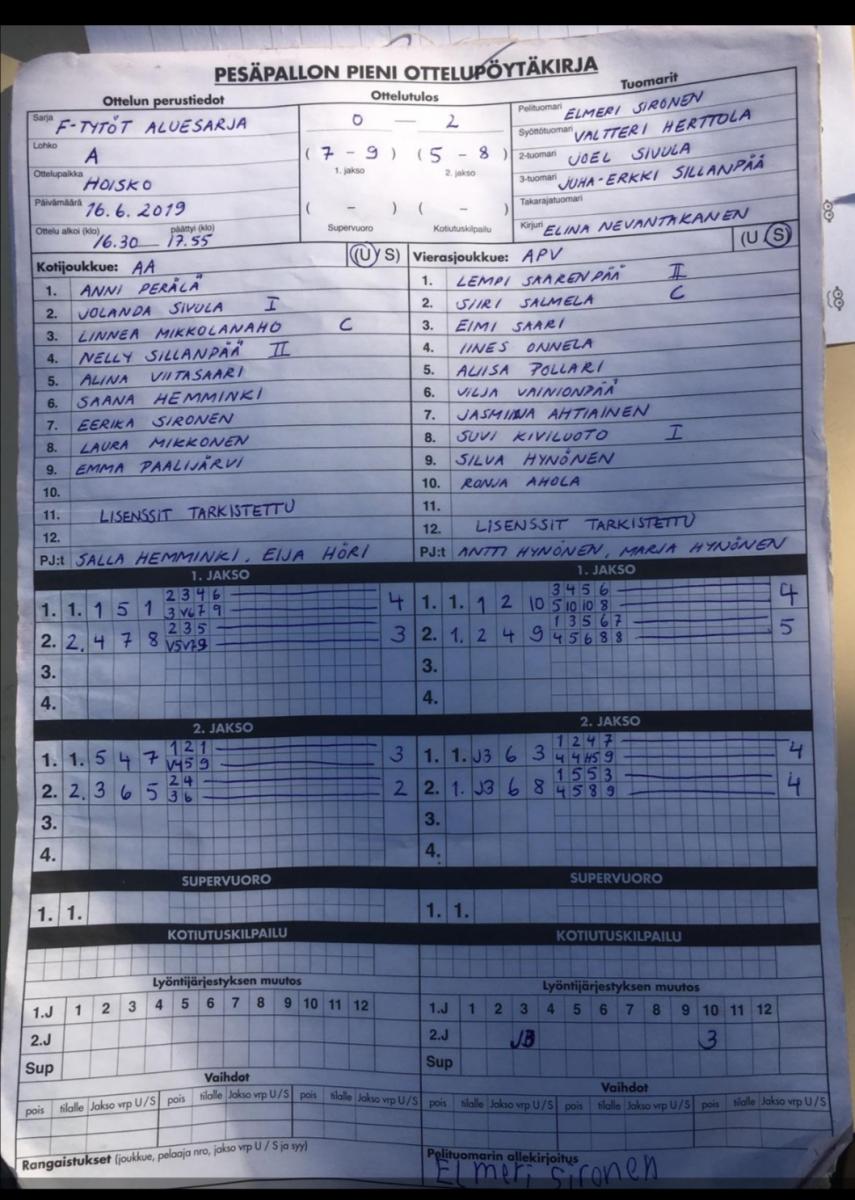 PESÄPALLON PIENI OTTELUPÖYTÄKIRJA
Ottelun perustiedot
Sarja F-TYTÖT ALUESARJA
Lohko A
Ottelupaikka HOISKO
Päivämäärä 16.6.2019
Ottelu alkoi (klo) päättyi (klo)
16.30 — 17.55
Ottelutulos
0 — 2
( 7 - 9 ) ( 5 - 8 )
1. jakso 2. jakso
( - ) ( - )
Supervuoro Kotiutuskilpailu
Tuomarit
Pelituomari ELMERI SIRONEN
Syöttötuomari VALTTERI HERTTOLA
2-tuomari JOEL SIVULA
3-tuomari JUHA-ERKKI SILLANPÄÄ
Takarajatuomari
Kirjuri ELINA NEVANTAKANEN
Kotijoukkue: AA (U S)
1. ANNI PERÄLÄ
2. JOLANDA SIVULA I
3. LINNEA MIKKOLANAHO C
4. NELLY SILLANPÄÄ II
5. ALINA VIITASAARI
6. SAANA HEMMINKI
7. EERIKA SIRONEN
8. LAURA MIKKONEN
9. EMMA PAALIJÄRVI
10.
11. LISENSSIT TARKISTETTU
12.
PJ:t SALLA HEMMINKI, EIJA HÖRI
Vierasjoukkue: APV (U S)
1. LEMPI SAARENPÄÄ II
2. SIIRI SALMELA C
3. EIMI SAARI
4. IINES ONNELA
5. ALISA POLLARI
6. VILJA VAINIONPÄÄ
7. JASMIINA AHTIAINEN
8. SUVI KIVILUOTO I
9. SILVA HYNÖNEN
10. RONJA AHOLA
11.
12. LISENSSIT TARKISTETTU
PJ:t ANTTI HYNÖNEN, MARJA HYNÖNEN
1. JAKSO
2 3 4 6
1. 1. 1 5 1 3 V6 7 9 4
2 3 5
2. 2. 4 7 8 V5 V7 9 3
3.
4.
1. JAKSO
3 4 5 6
1. 1. 1 2 10 5 10 10 8 4
1 3 5 6 7
2. 1. 2 4 9 4 5 6 8 8 5
3.
4.
2. JAKSO
1 2 1
1. 1. 5 4 7 V4 5 9 3
2 4
2. 2. 3 6 5 3 6 2
3.
4.
2. JAKSO
1 2 4 7
1. 1. J3 6 3 4 4 H5 9 4
1 5 5 3
2. 1. J3 6 8 4 5 8 9 4
3.
4.
SUPERVUORO
1. 1.
SUPERVUORO
1. 1.
KOTIUTUSKILPAILU
KOTIUTUSKILPAILU
Lyöntijärjestyksen muutos
1.J 1 2 3 4 5 6 7 8 9 10 11 12
2.J
Sup
Lyöntijärjestyksen muutos
1.J 1 2 3 4 5 6 7 8 9 10 11 12
2.J J3 3
Sup
Vaihdot
pois tilalle Jakso vrp U/S pois tilalle Jakso vrp U/S pois tilalle Jakso vrp U/S
Vaihdot
pois tilalle Jakso vrp U/S pois tilalle Jakso vrp U/S pois tilalle Jakso vrp U/S
Rangaistukset (joukkue, pelaaja nro, jakso vrp U / S ja syy)
Pelituomarin allekirjoitus
Elmeri sironen